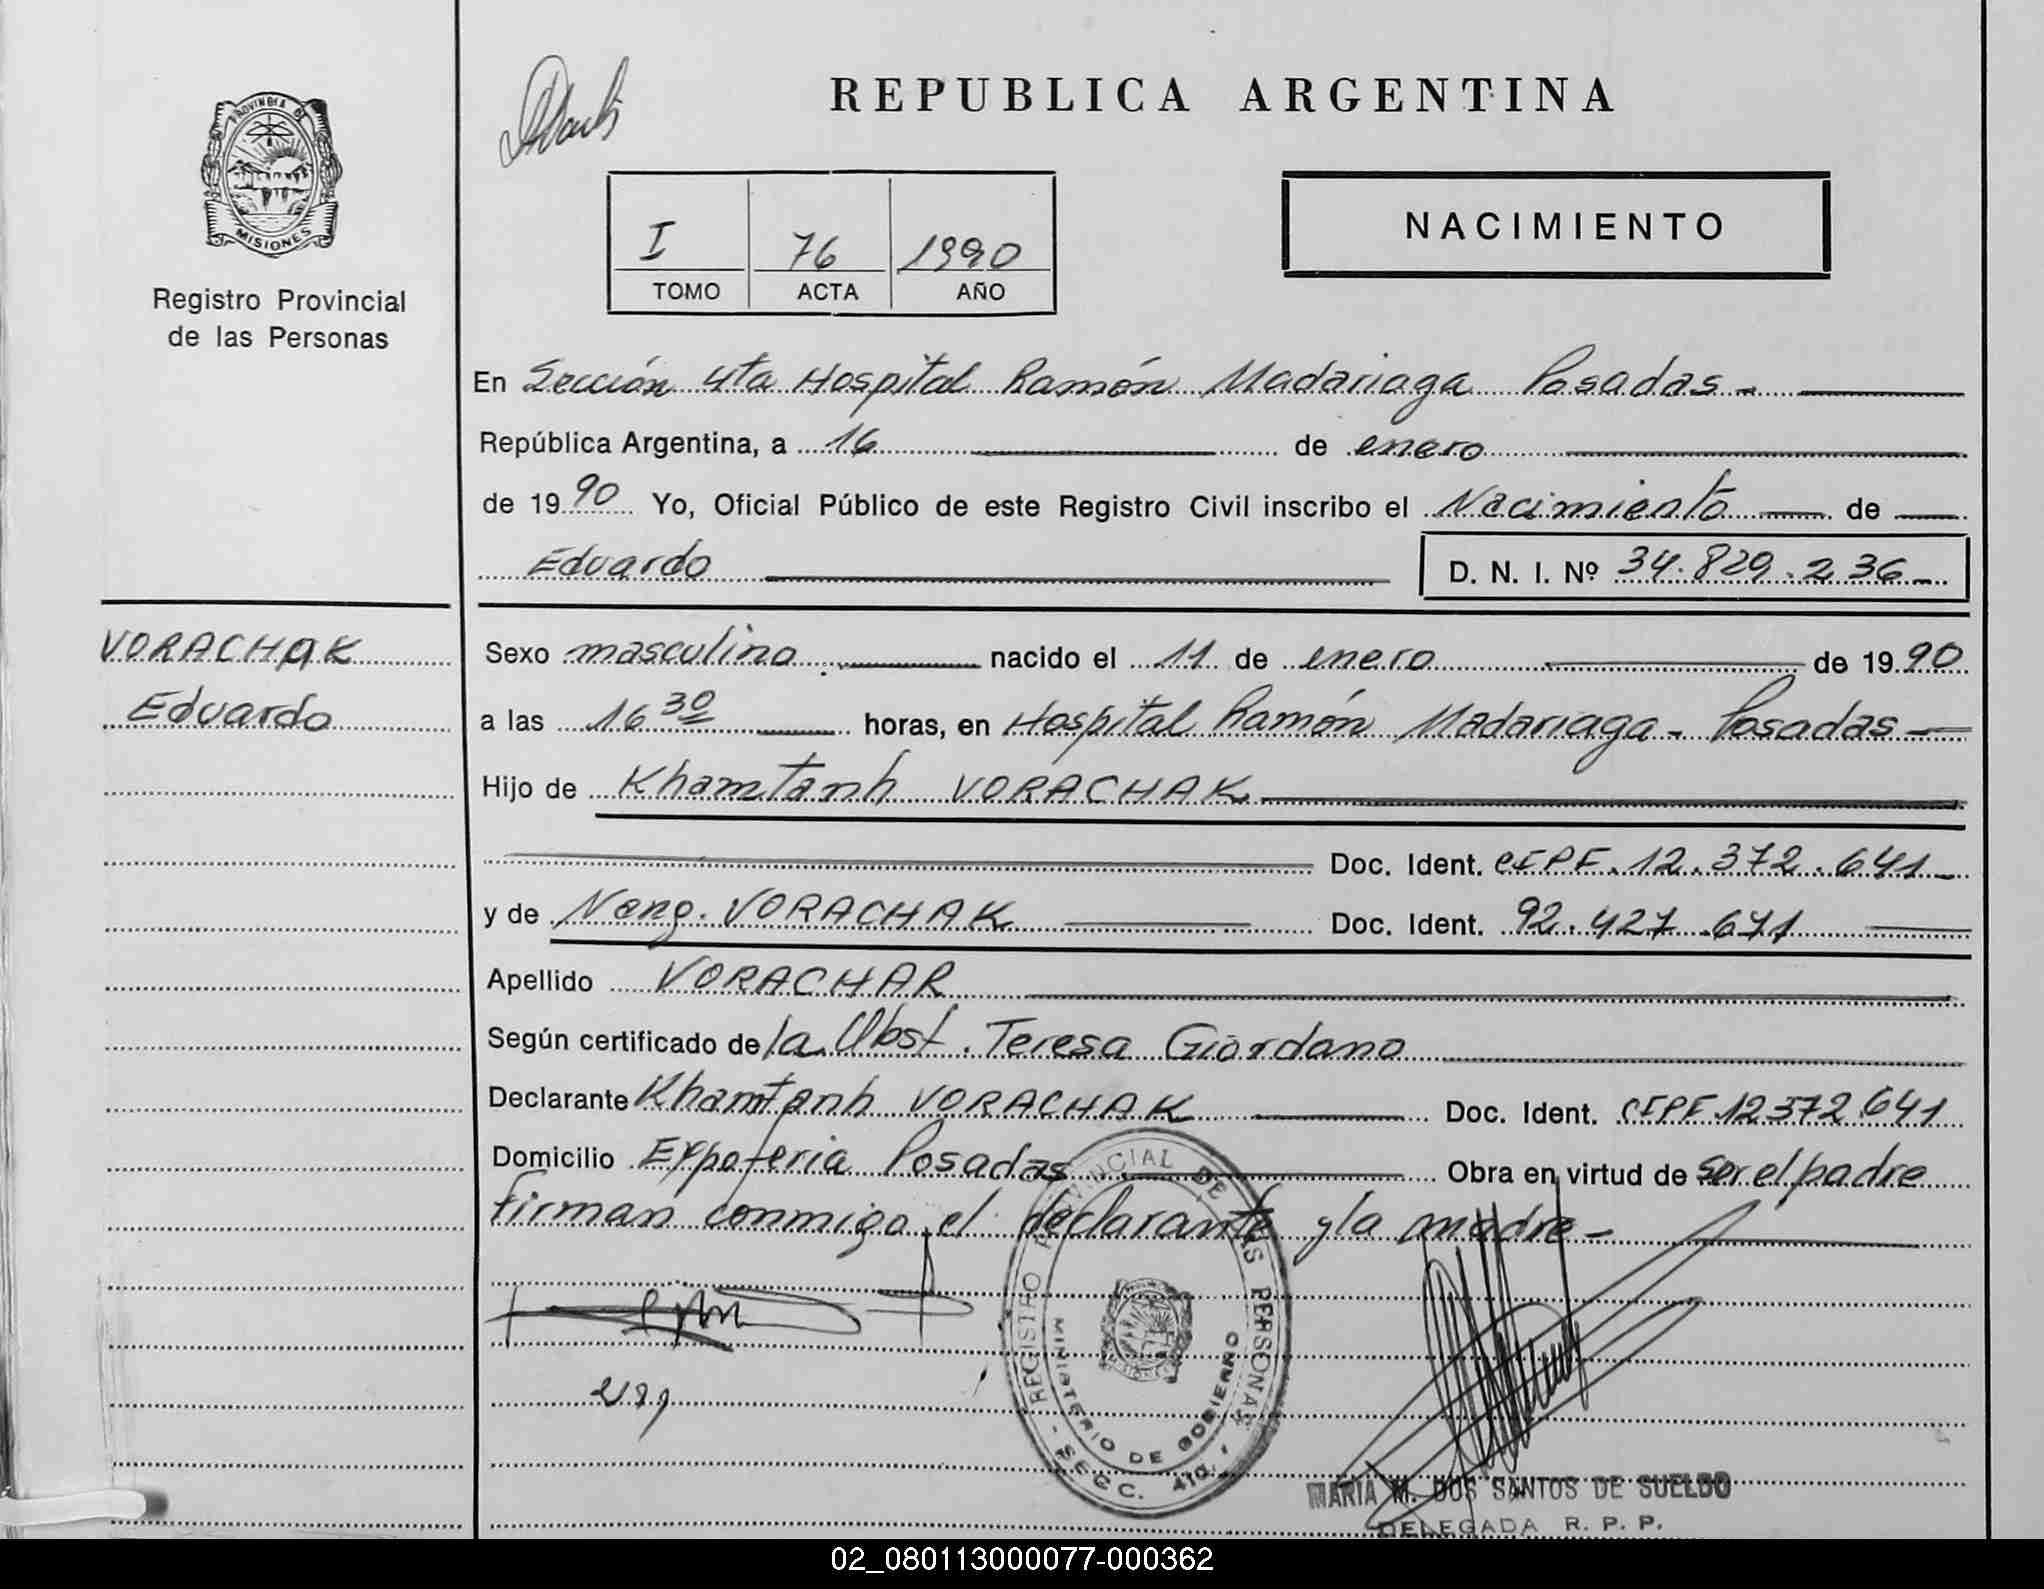 PROVINCIA DE
MISIONES
Registro Provincial
de las Personas
REPUBLICA ARGENTINA
NACIMIENTO
I 76 1990
TOMO ACTA AÑO
En Sección 4ta Hospital Ramón Madariaga Posadas-
República Argentina, a 16 de enero
de 1990 Yo, Oficial Público de este Registro Civil inscribo el Nacimiento de
Eduardo D. N. I. Nº 34.829.236-
VORACHAK
Eduardo
Sexo masculino nacido el 11 de enero de 1990
a las 16 30 horas, en Hospital Ramón Madariaga- Posadas-
Hijo de Khamtanh VORACHAK
Doc. Ident. CIPF.12.372.641-
y de Neng. VORACHAK Doc. Ident. 92.427.671
Apellido VORACHAR
Según certificado de la Obst. Teresa Giordano
Declarante Khamtanh VORACHAK Doc. Ident. CIPF.12372.641
Domicilio Expoferia Posadas Obra en virtud de ser el padre
firman conmigo el declarante y la madre-
REGISTRO PROVINCIAL DE LAS PERSONAS
MINISTERIO DE GOBIERNO
- SECC. 4ta. -
MARIA M. DOS SANTOS DE SUELDO
DELEGADA R. P. P.
02_080113000077-000362